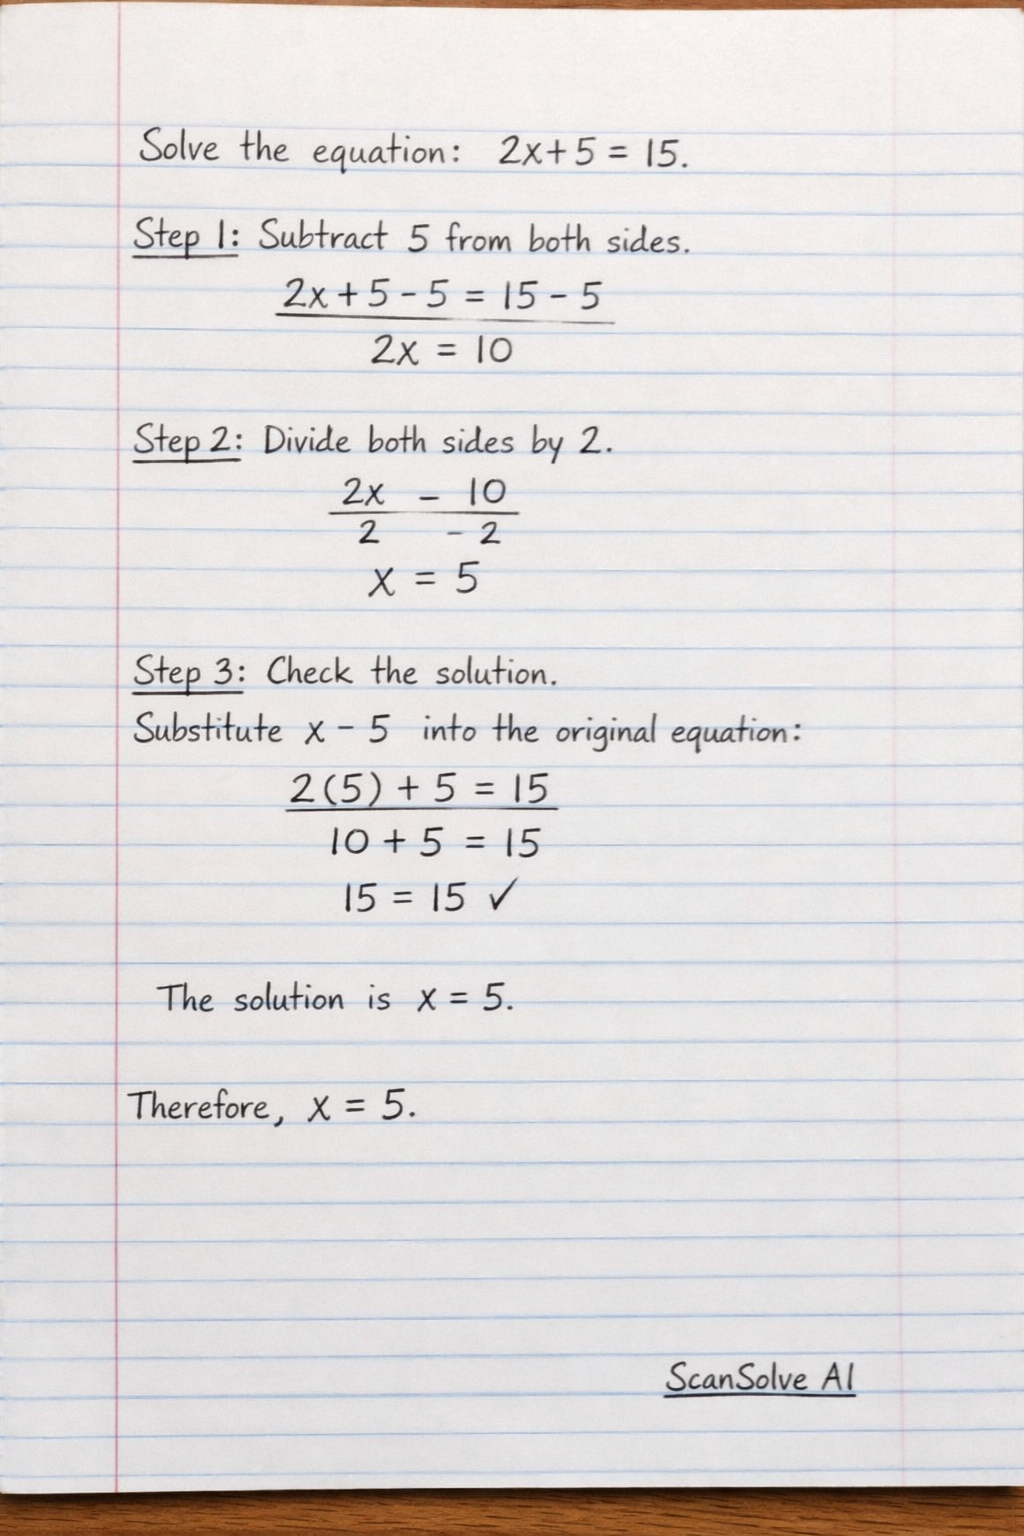 Solve the equation: 2x+5 = 15.
Step 1: Subtract 5 from both sides.
2x + 5 - 5 = 15 - 5
2x = 10
Step 2: Divide both sides by 2.
2x - 10
2 - 2
x = 5
Step 3: Check the solution.
Substitute x - 5 into the original equation:
2(5) + 5 = 15
10 + 5 = 15
15 = 15 ✓
The solution is x = 5.
Therefore, x = 5.
ScanSolve AI